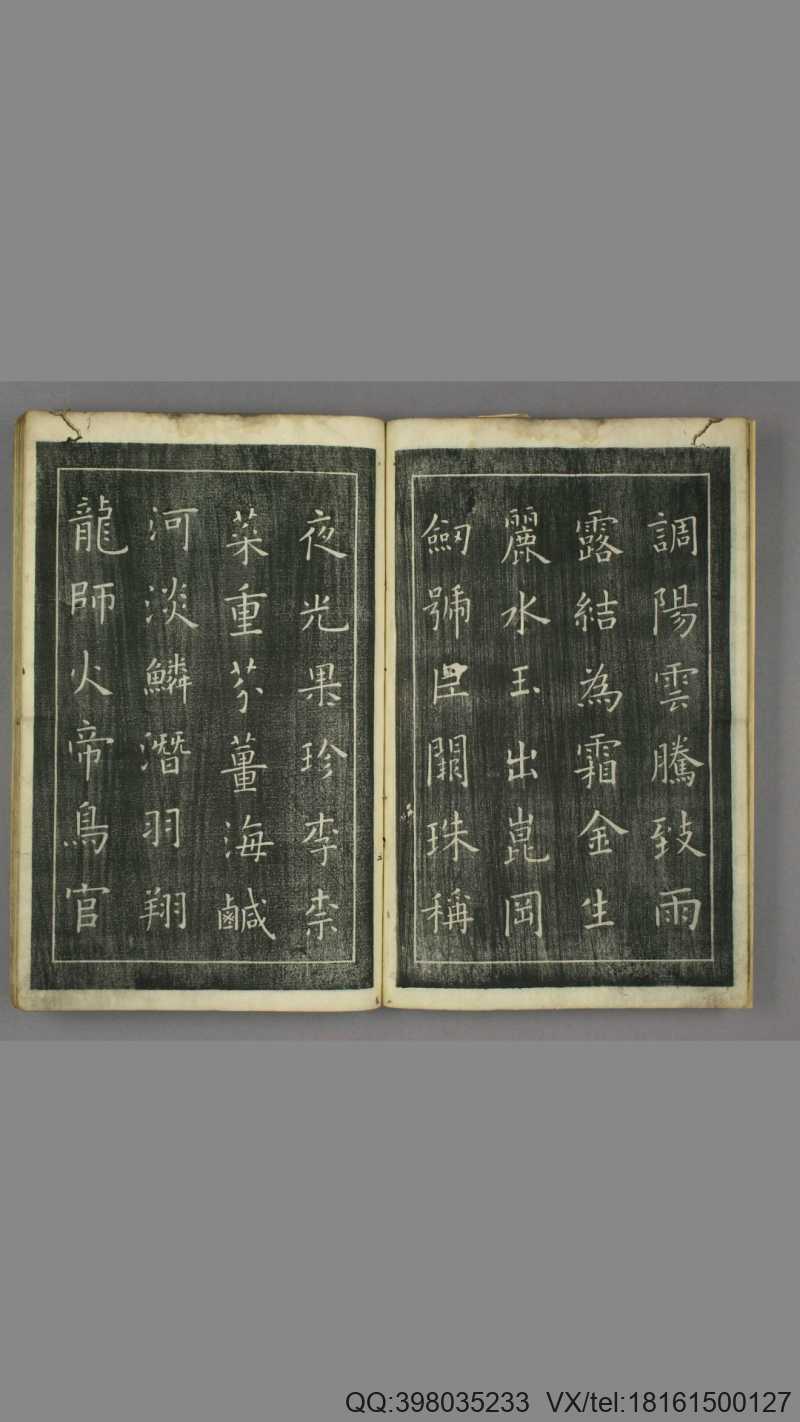 調陽雲騰致雨
露結為霜金生
麗水玉出崑岡
劒號巨闕珠稱
夜光果珍李柰
菜重芥薑海鹹
河淡鱗潛羽翔
龍師火帝鳥官
QQ:398035233 VX/tel:18161500127